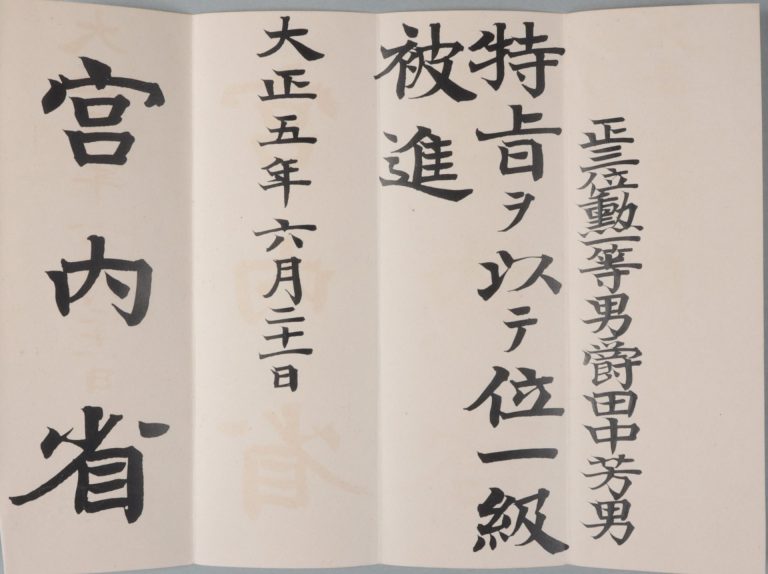 正三位勲一等男爵田中芳男
特旨ヲ以テ位一級
被進
大正五年六月二十一日
宮内省